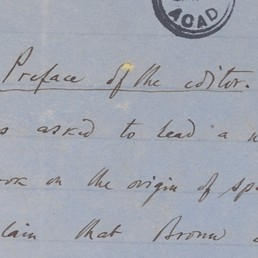 ACAD
Preface of the editor.
s asked to lead a n
on the origin of sp
lain that Bronn a